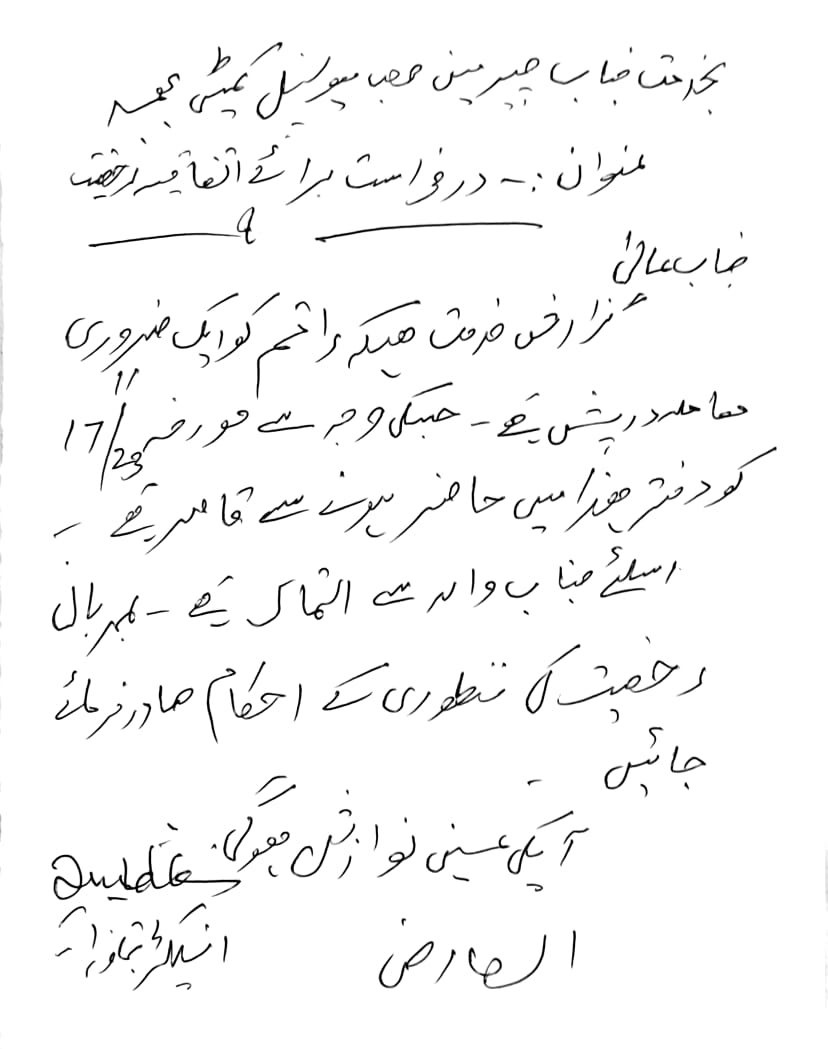 بخدمت جناب چیرمین صاحب میونسپل کمیٹی
عنوان :۔ درخواست برائے اتفاقیہ رخصت
جناب عالیٰ
گزارش خدمت ھیکہ راقم کو ایک ضروری
معاملہ درپیش ہے ۔ جسکی وجہ سے مورخہ 17/11/23
کو دفتر ھذا میں حاضر ہونے سے قاصر ہے ۔
اسلئے جناب والہ سے التماس ہے ۔
رخصت کی منظوری کے احکام صادر فرمائے
جائیں ۔
آپکی عین نوازش ہوگی۔
العارض
انسپکٹر تجاوزات